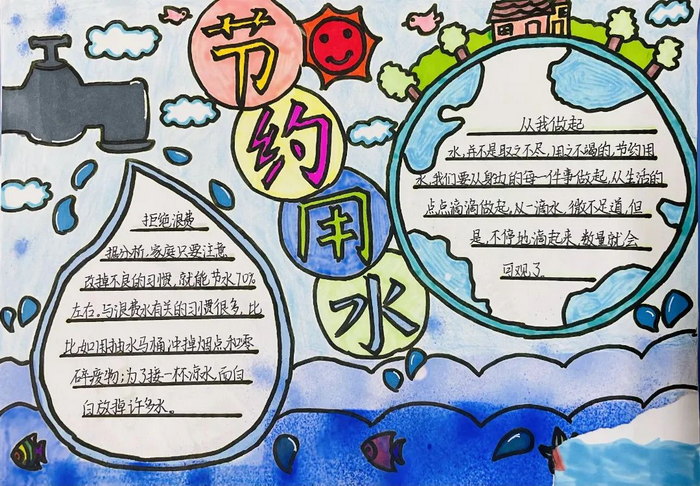 节
约
用
水
拒绝浪费
据分析,家庭只要注意
改掉不良的习惯,就能节水70%
左右。与浪费水有关的习惯很多,比
比如用抽水马桶冲掉烟点和零
碎废物;为了接一杯凉水,而白
白放掉许多水。
从我做起
水,并不是取之不尽,用之不竭的,节约用
水,我们要从身边的每一件事做起,从生活的
点点滴滴做起,从一滴水,微不足道,但
是,不停地滴起来,数量就会
可观了